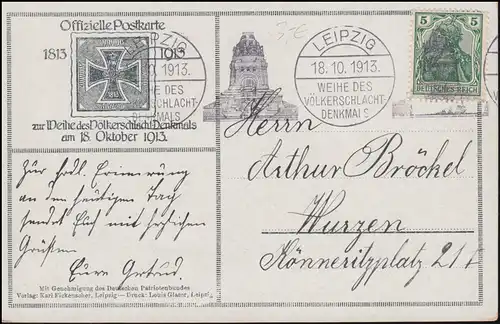 Offizielle Postkarte
1813 1913
zur Weihe des Völkerschlacht-Denkmals
am 18. Oktober 1913.
LEIPZIG
18.10.1913.
WEIHE DES
VÖLKERSCHLACHT-
DENKMALS
LEIPZIG
18.10.1913.
WEIHE DES
VÖLKERSCHLACHT-
DENKMALS
5 5
DEUTSCHES REICH
3€
Herrn
Arthur Bröckel
Wurzen
Könneritzplatz 21
Zur frdl. Erinnerung
an den heutigen Tag
sendet Euch mit herzlichen
Grüßen
Eure Gertrud.
Mit Genehmigung des Deutschen Patriotenbundes
Verlag: Karl Fickenscher, Leipzig — Druck: Louis Glaser, Leipzig.